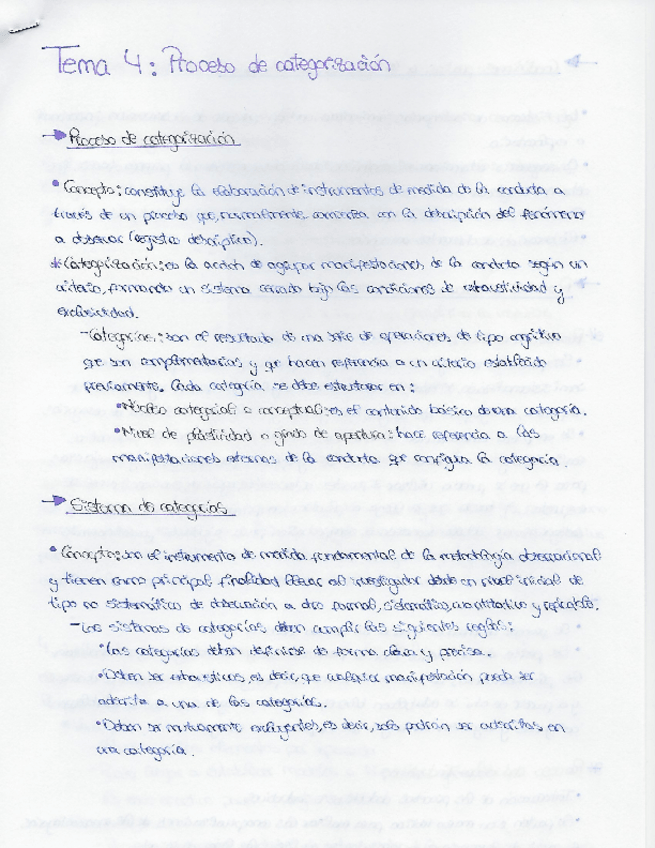 Tema 4: Proceso de categorización
Proceso de categorización
• Concepto: constituye la elaboración de instrumentos de medida de la conducta a
través de un proceso que, normalmente, comienza con la descripción del fenómeno
a observar (registro descriptivo).
* Categorización: es la acción de agrupar manifestaciones de la conducta según un
criterio, formando un sistema cerrado bajo las condiciones de exhaustividad y
exclusividad.
- Categorías: son el resultado de una serie de operaciones de tipo cognitivo
que son complementarias y que hacen referencia a un criterio establecido
previamente. Cada categoría se debe estructurar en:
• Núcleo categorial o conceptual: es el contenido básico de una categoría.
• Nivel de plasticidad o grado de apertura: hace referencia a las
manifestaciones externas de la conducta que configura la categoría.
Sistema de categorías
• Concepto: son el instrumento de medida fundamental de la metodología observacional
y tienen como principal finalidad llevar al investigador desde un nivel inicial de
tipo no sistemático de observación a otro formal, sistemático, cuantitativo y replicable.
- Los sistemas de categorías deben cumplir las siguientes reglas:
• Las categorías deben definirse de forma clara y precisa.
• Deben ser exhaustivas, es decir, que cualquier manifestación pueda ser
adscrita a una de las categorías.
• Deben ser mutuamente excluyentes, es decir, solo podrán ser adscritas en
una categoría.